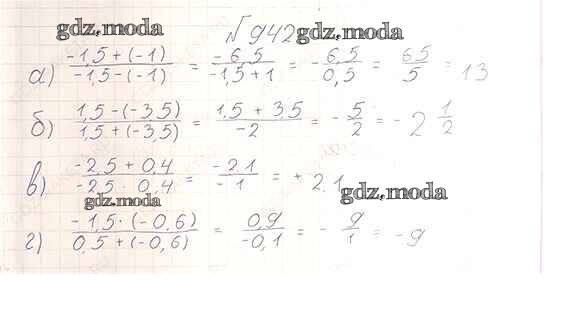 gdz.moda
№942 gdz.moda
а) -1,5 + (-1) / -1,5 - (-1) = -6,5 / -1,5 + 1 = - 6,5 / 0,5 = 65 / 5 = 13
б) 1,5 - (-3,5) / 1,5 + (-3,5) = 1,5 + 3,5 / -2 = - 5 / 2 = -2 1/2
в) -2,5 + 0,4 / -2,5 · 0,4 = -2,1 / -1 = + 2.1
gdz.moda
gdz.moda
г) -1,5 · (-0,6) / 0,5 + (-0,6) = 0,9 / -0,1 = - 9 / 1 = -9